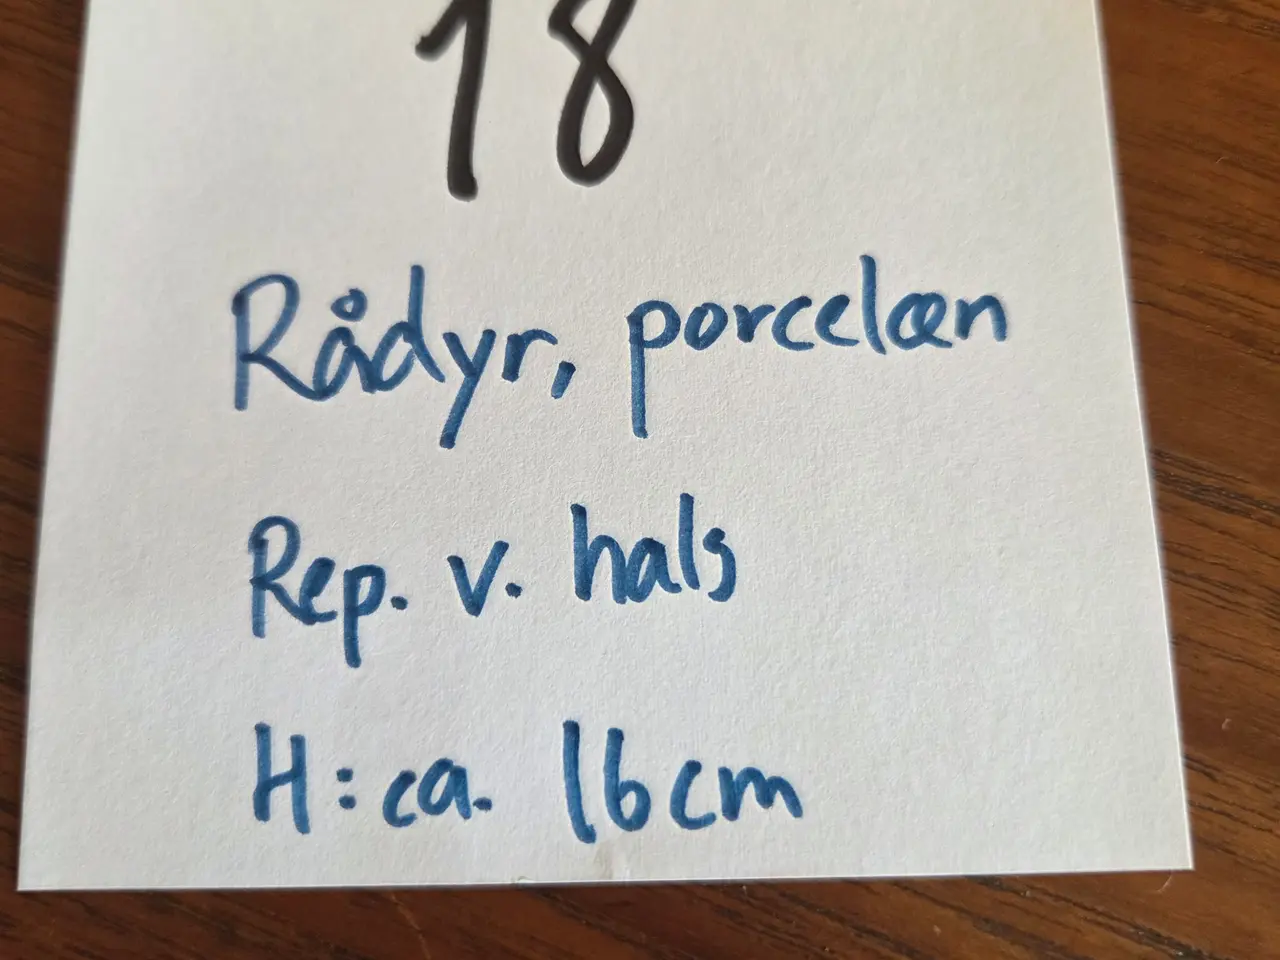 18
Rådyr, porcelæn
Rep. v. hals
H: ca. 16cm